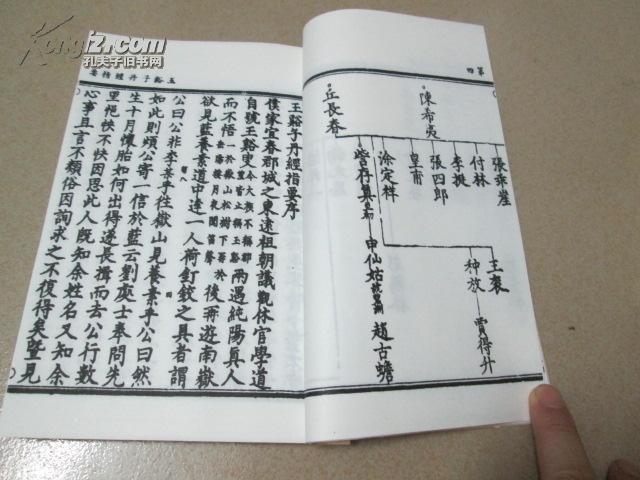 Kongfz.com
孔夫子旧书网
第四
陳希夷
張乖崖
付林
李挺
張四郎
皇甫
涂定祥
王衮
种放
賈得升
丘長春
申仙姑
趙古蟾
玉谿子丹經指要
王谿子丹經指要序
僕家宜春郡城之東遠祖朝議觀休官學道
自號玉谿叟
而不悟
兩遇純陽真人
後再遊南嶽
欲見藍養素道中逢一人荷釘鉸之具者謂
公曰公非李㭍乎往嶽山見養素乎公曰然
如此則煩公寄一信於藍云劉處士奉問先
生十月懷胎如何出得遂長揖而去公行數
里悒怏不快因思此人旣知余姓名又知余
心事且言不類俗因詢求之不復得矣暨見